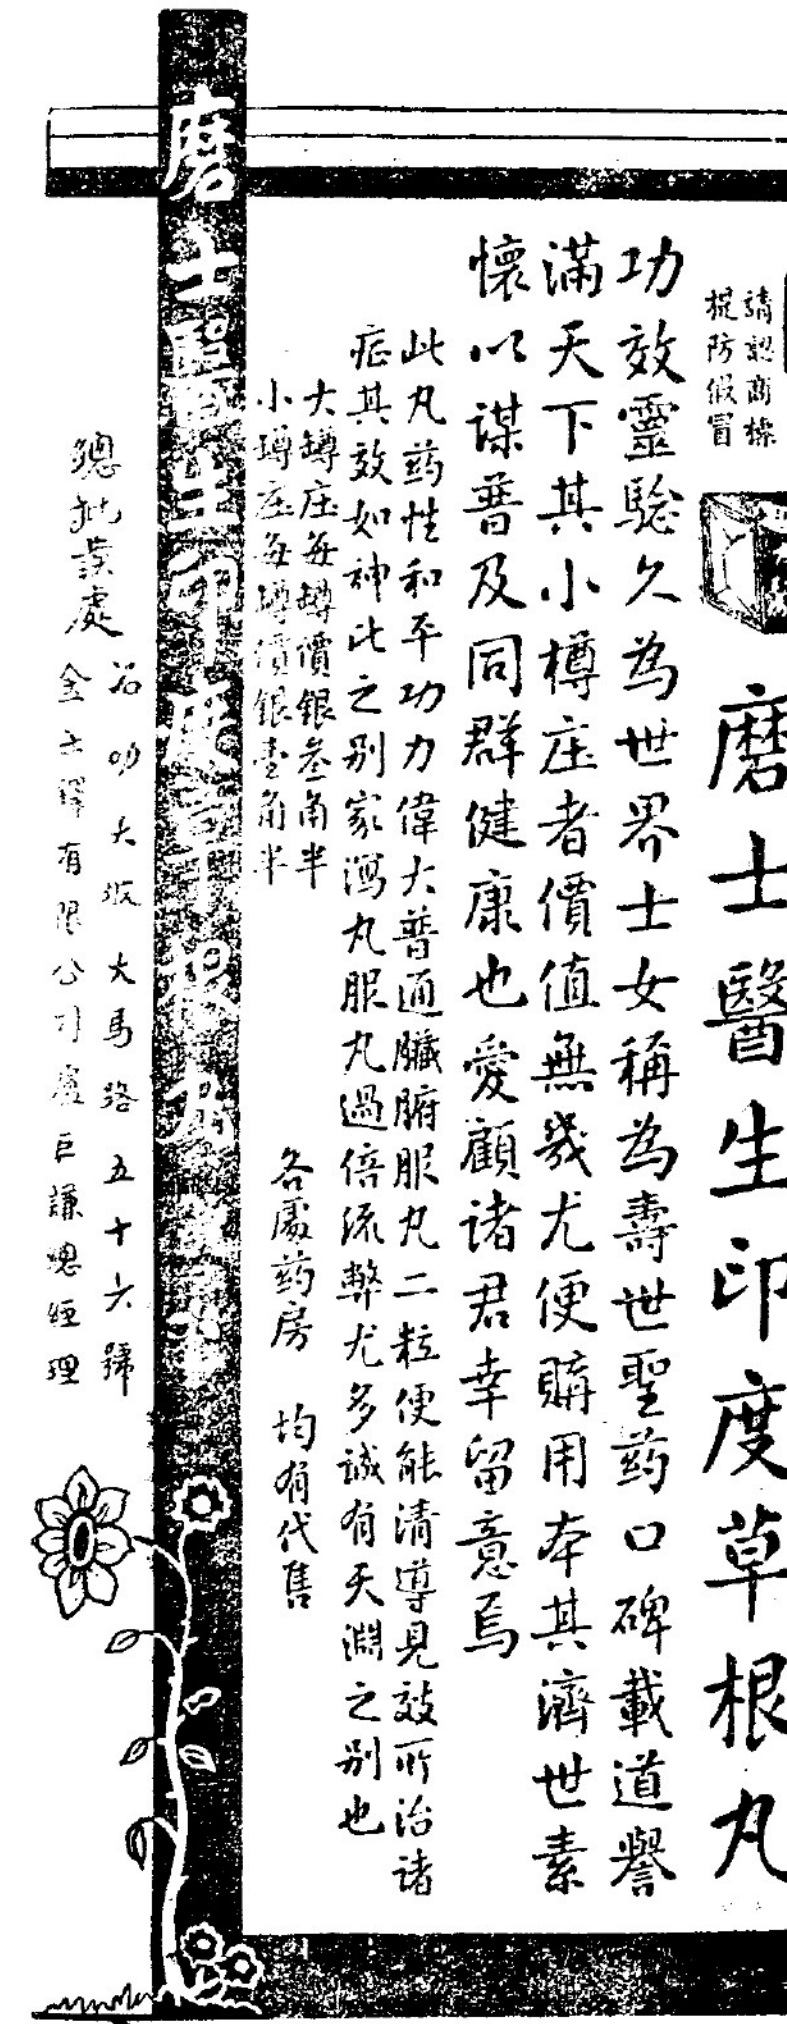 請認商標
提防假冒
磨士醫生印度草根丸
功效靈驗久為世界士女稱為壽世聖药口碑載道譽
滿天下其小樽庄者價值無幾尤便購用本其濟世素
懷以謀普及同群健康也愛顧诸君幸留意焉
此丸药性和平功力偉大普通臟腑服丸二粒便能清導見效所治诸
症其效如神比之别家瀉丸服丸過倍流弊尤多诚有天淵之别也
大罇庄每罇價銀叁角半
小罇庄每罇價銀壹角半
各處药房 均有代售
磨士醫生印度草根丸
總批發處
大坡大馬路五十六號
有限公司盧巨謙總經理